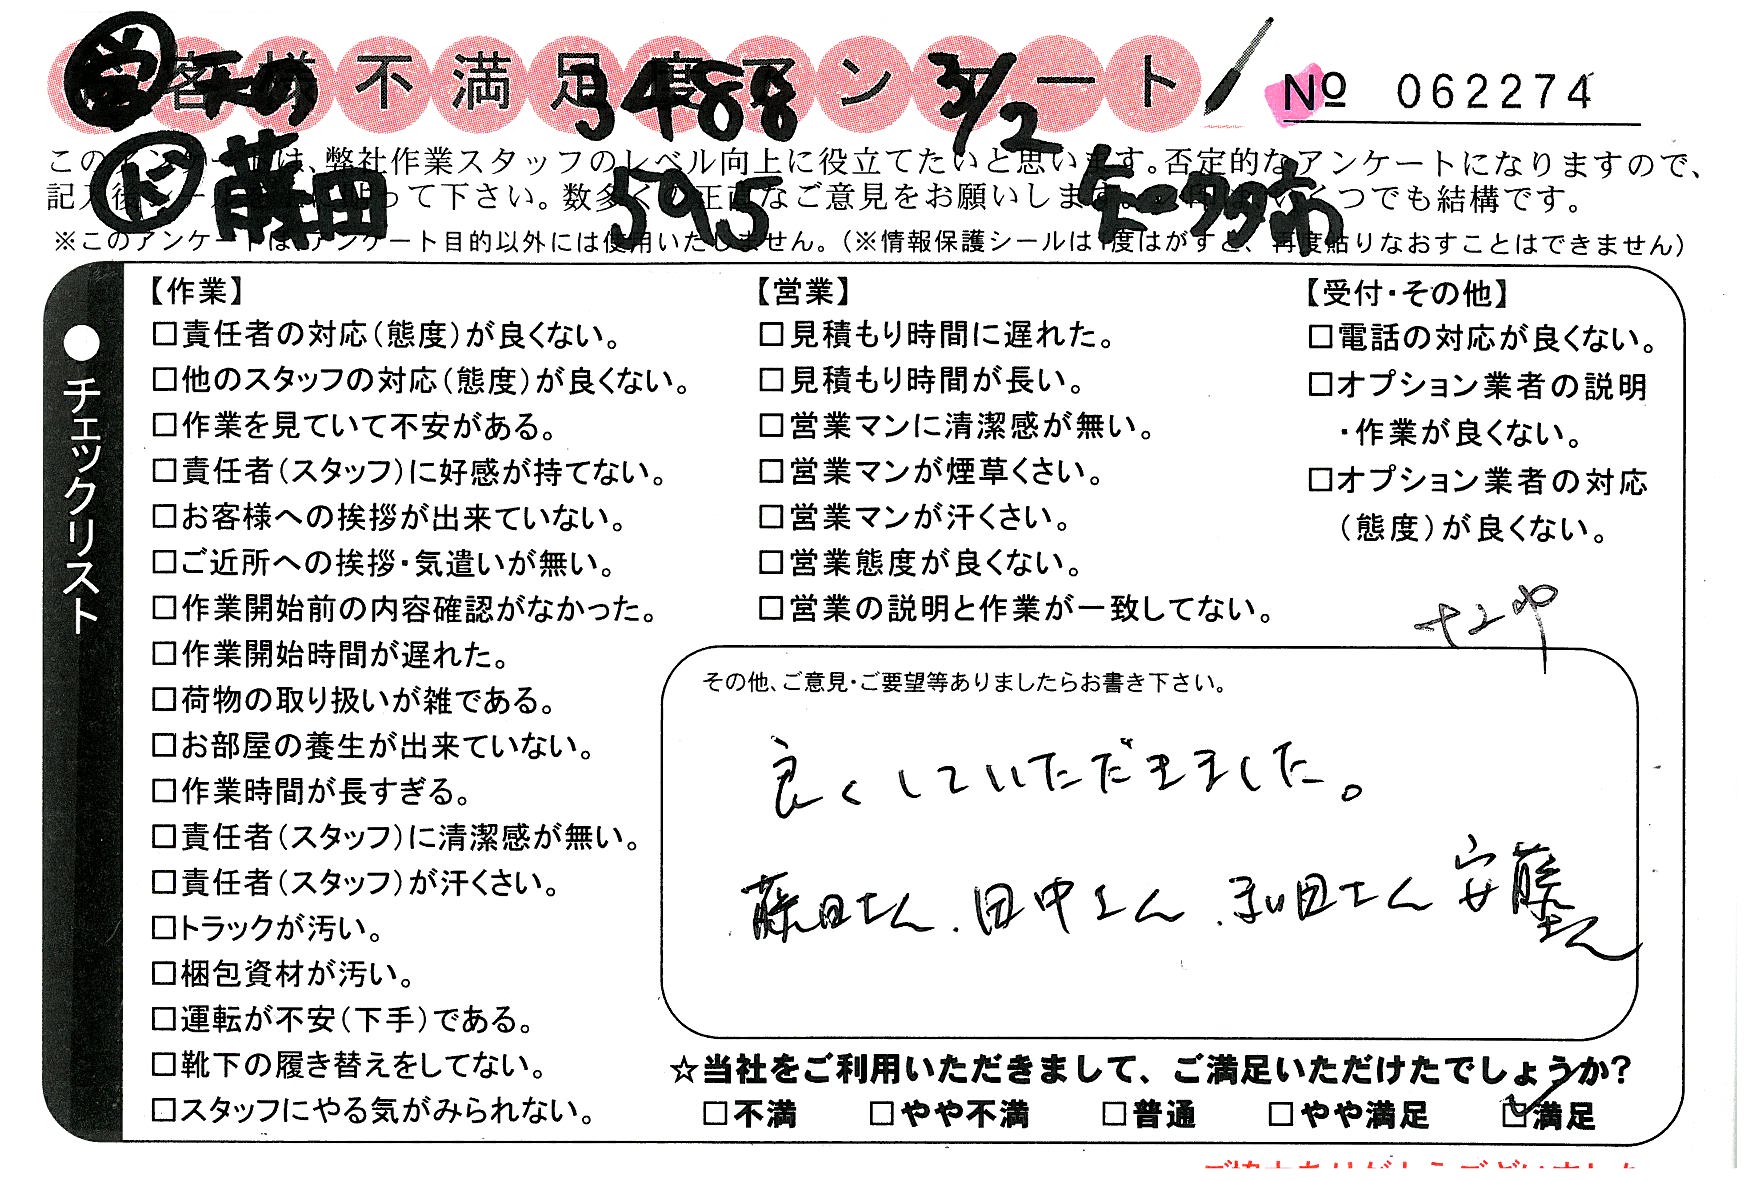 お客様不満足度アンケート
営 天の 3488 3/2
No 062274
ド 藤田 595 知多市
このアンケートは、弊社作業スタッフのレベル向上に役立てたいと思います。否定的なアンケートになりますので、
記入後シールを貼って下さい。数多くの正直なご意見をお願いします。いくつでも結構です。
※このアンケートは、アンケート目的以外には使用いたしません。(※情報保護シールは1度はがすと、再度貼りなおすことはできません)
●チェックリスト
【作業】
□責任者の対応(態度)が良くない。
□他のスタッフの対応(態度)が良くない。
□作業を見ていて不安がある。
□責任者(スタッフ)に好感が持てない。
□お客様への挨拶が出来ていない。
□ご近所への挨拶・気遣いが無い。
□作業開始前の内容確認がなかった。
□作業開始時間が遅れた。
□荷物の取り扱いが雑である。
□お部屋の養生が出来ていない。
□作業時間が長すぎる。
□責任者(スタッフ)に清潔感が無い。
□責任者(スタッフ)が汗くさい。
□トラックが汚い。
□梱包資材が汚い。
□運転が不安(下手)である。
□靴下の履き替えをしてない。
□スタッフにやる気がみられない。
【営業】
□見積もり時間に遅れた。
□見積もり時間が長い。
□営業マンに清潔感が無い。
□営業マンが煙草くさい。
□営業マンが汗くさい。
□営業態度が良くない。
□営業の説明と作業が一致してない。
【受付・その他】
□電話の対応が良くない。
□オプション業者の説明
・作業が良くない。
□オプション業者の対応
(態度)が良くない。
その他、ご意見・ご要望等ありましたらお書き下さい。
良くしていただきました。
藤田さん、田中さん、和田さん 安藤さん
☆当社をご利用いただきまして、ご満足いただけたでしょうか?
□不満 □やや不満 □普通 □やや満足 ☑満足
ご協力ありがとうございました